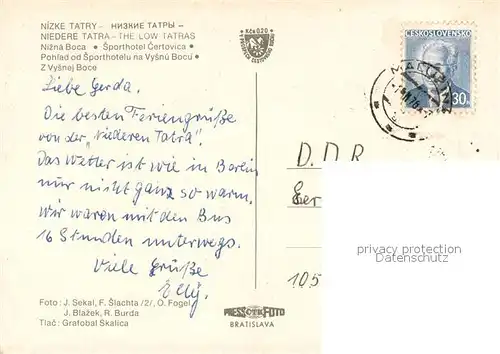 NÍZKE TATRY – НИЗКИЕ ТАТРЫ –
NIEDERE TATRA – THE LOW TATRAS
Nižná Boca • Športhotel Čertovica •
Pohľad od Športhotelu na Vyšnú Bocu •
Z Vyšnej Boce
Kčs 0,20
ČESKOSLOVENSKO
30h
Liebe Gerda.
Die besten Feriengrüße
von der "niederen Tatra".
Das Wetter ist wie in Berlin
nur nicht ganz so warm.
Wir waren mit den Bus
16 Stunden unterwegs.
Viele Grüße
Elly.
D.D.R.
Ber
105
privacy protection
Datenschutz
Foto: J. Sekal, F. Šlachta /2/, O. Fogel,
J. Blažek, R. Burda
Tlač: Grafobal Skalica
PRESSFOTO
BRATISLAVA